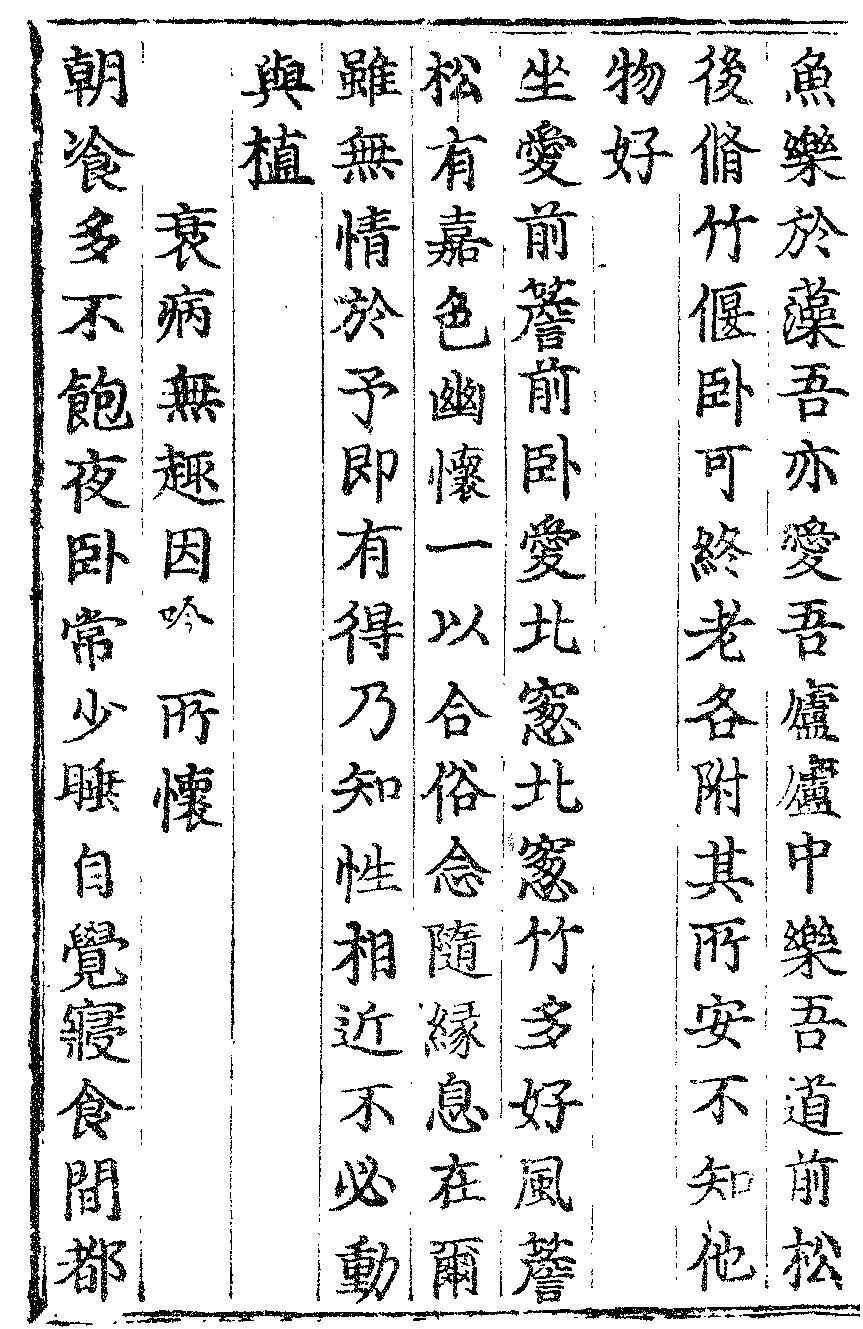 魚樂於藻吾亦愛吾廬廬中樂吾道前松
後脩竹偃卧可終老各附其所安不知他
物好
坐愛前簷前卧愛北窓北窓竹多好風簷
松有嘉色幽懷一以合俗念隨緣息在爾
雖無情於予即有得乃知性相近不必動
與植
衰病無趣因吟所懷
朝飡多不飽夜卧常少睡自覺寢食間都